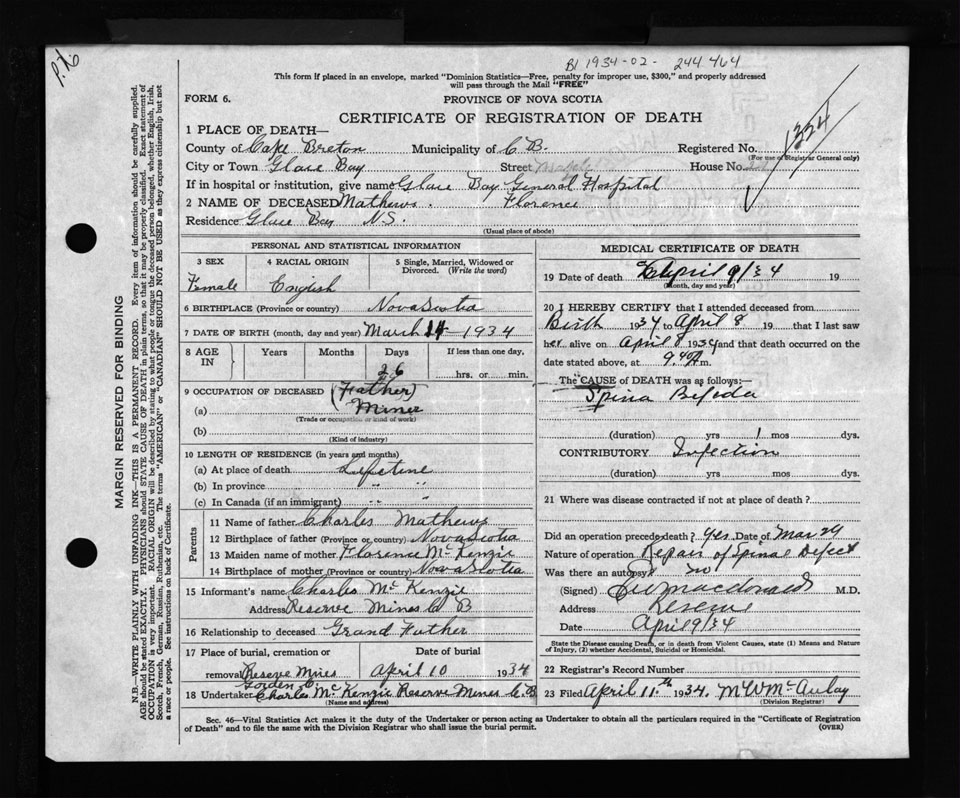 P.N.6
B1 1934-02-244464
This form if placed in an envelope, marked "Dominion Statistics—Free, penalty for improper use, $300," and properly addressed
will pass through the Mail "FREE"
FORM 6.
PROVINCE OF NOVA SCOTIA
CERTIFICATE OF REGISTRATION OF DEATH
1334
1 PLACE OF DEATH—
County of Cape Breton Municipality of C B. Registered No.
(For use of Registrar General only)
City or Town Glace Bay Street House No.
If in hospital or institution, give name Glace Bay General Hospital
2 NAME OF DECEASED Mathews. Florence
Residence Glace Bay N S.
(Usual place of abode)
MARGIN RESERVED FOR BINDING
N.B.—WRITE PLAINLY WITH UNFADING INK—THIS IS A PERMANENT RECORD. Every item of information should be carefully supplied.
AGE should be stated EXACTLY. PHYSICIANS should STATE CAUSE OF DEATH in plain terms, so that it may be properly classified. Exact statement of
OCCUPATION is very important. RACIAL ORIGIN will be described by stating to what people or tongue the deceased person belonged, whether English, Irish,
Scotch, French, German, Russian, Ruthenian, etc. The terms "AMERICAN" or "CANADIAN" SHOULD NOT BE USED as they express citizenship but not
a race or people. See instructions on back of Certificate.
PERSONAL AND STATISTICAL INFORMATION
3 SEX
4 RACIAL ORIGIN
5 Single, Married, Widowed or
Divorced. (Write the word)
Female English
6 BIRTHPLACE (Province or country) Nova Scotia
7 DATE OF BIRTH (month, day and year) March 14 1934
8 AGE IN
Years Months Days If less than one day.
26 hrs. or min.
9 OCCUPATION OF DECEASED (Father)
(a) Miner
(Trade or occupation or kind of work)
(b)
(Kind of industry)
10 LENGTH OF RESIDENCE (in years and months)
(a) At place of death Lifetime
(b) In province " "
(c) In Canada (if an immigrant) " "
Parents
11 Name of father Charles Mathews
12 Birthplace of father (Province or country) Nova Scotia
13 Maiden name of mother Florence McKenzie
14 Birthplace of mother (Province or country) Nova Scotia
15 Informant's name Charles McKenzie
Address Reserve Mines C B
16 Relationship to deceased Grand Father
17 Place of burial, cremation or
removal Reserve Mines
Date of burial
April 10 1934
Gordon C.
18 Undertaker Charles McKenzie Reserve Mines C.B
(Name and address)
MEDICAL CERTIFICATE OF DEATH
19 Date of death April 9/34 19
(Month, day and year)
20 I HEREBY CERTIFY that I attended deceased from
Birth 1934 to April 8 19 that I last saw
her alive on April 8 1934 and that death occurred on the
date stated above, at 9 40 A m.
The CAUSE of DEATH was as follows:—
Spina Bifida
(duration) yrs 1 mos dys.
CONTRIBUTORY Infection
(duration) yrs mos dys.
21 Where was disease contracted if not at place of death?
Did an operation precede death? Yes. Date of Mar 24
Nature of operation Repair of Spinal Defect
Was there an autopsy no
(Signed) Macdonald M.D.
Address Reserve
Date April 9/34
State the Disease causing Death, or in death from Violent Causes, state (1) Means and Nature
of Injury, (2) whether Accidental, Suicidal or Homicidal.
22 Registrar's Record Number
23 Filed April 11th 1934. M W McAulay
(Division Registrar)
Sec. 46—Vital Statistics Act makes it the duty of the Undertaker or person acting as Undertaker to obtain all the particulars required in the "Certificate of Registration
of Death" and to file the same with the Division Registrar who shall issue the burial permit.
(OVER)